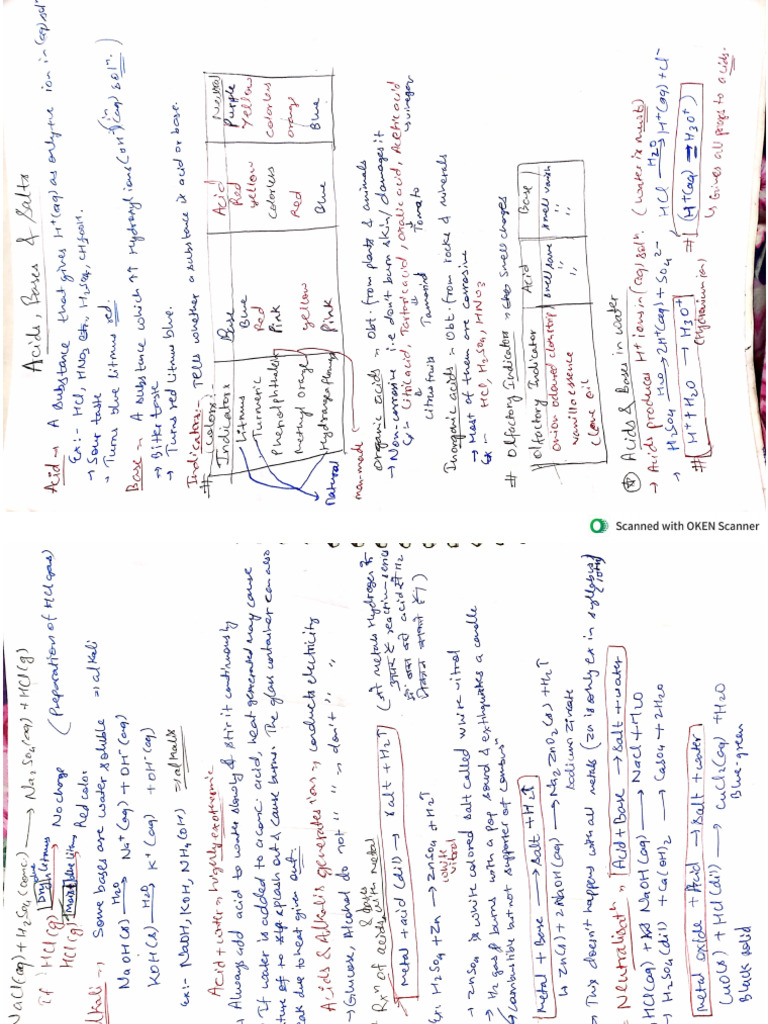 Acids, Bases & Salts
Acid → A substance that gives H⁺(aq) as only +ve ion in (aq) solⁿ
Ex:- HCl, HNO₃ etc, H₂SO₄, CH₃COOH.
→ Sour taste
→ Turns blue litmus red.
Base → A substance which ↑↑ Hydroxyl ions (OH⁻) in (aq) solⁿ.
→ Bitter taste
→ Turns red litmus blue.
Indicator. → Tells whether a substance is acid or base.
# Colors:-
Indicators Base Acid Neutral
Litmus Blue Red Purple
Turmeric Red yellow Yellow
Phenolphthalein Pink colorless colorless
Methyl orange yellow Red orange
Hydrangea Pink Blue Blue
natural
man-made
Organic acids = Obt. from plants & animals
→ Non-corrosive i.e don't burn skin / damages it
Ex → Citric acid, Tartaric acid, Oxalic acid, Acetic acid
Citrus fruits Tamarind Tomato vinegar
Inorganic acids → Obt. from rocks & minerals
→ Most of them are corrosive
Ex :- HCl, H₂SO₄, HNO₃
# Olfactory Indicators → smell changes
Olfactory Indicator Acid Base
onion odoured cloth strip smell same smell vanish
vanilla essence " "
clove oil " "
Acids & Bases in water
→ Acids produces H⁺ ions in (aq) solⁿ. (water is must)
→ H₂SO₄ H₂O→ 2H⁺(aq) + SO₄²⁻ HCl H₂O→ H⁺(aq) + Cl⁻
# H⁺ + H₂O → H₃O⁺ # (H⁺(aq) = H₃O⁺)
(Hydronium ion) ↳ Gives all props to acids.
Scanned with OKEN Scanner
NaCl(aq) + H₂SO₄(conc) → Na₂SO₄(aq) + HCl(g)
If HCl(g) Dry blue litmus → No change (Preparation of HCl gas)
HCl(g) + moist blue litmus → Red color
alkali → Some bases are water soluble → alkali
NaOH(s) H₂O→ Na⁺(aq) + OH⁻(aq)
KOH(s) H₂O→ K⁺(aq) + OH⁻(aq)
Ex:- NaOH, KOH, NH₄(OH) → alkalis
Acid + water = highly exothermic
Always add acid to water slowly & stir it continuously
If water is added to a conc acid, heat generated may cause
mixture to splash out & cause burns. The glass container can also
break due to heat given out.
Acids & Alkalis generates ions → conducts electricity
→ Glucose, Alcohol do not " " → don't " "
Rxn of acids & bases with metal
Metal + acid (dil) → salt + H₂↑
Ex: H₂SO₄ + Zn → ZnSO₄ + H₂↑
white vitrol
→ ZnSO₄ is white colored salt called white vitrol
→ H₂ gas burns with a pop sound & extinguishes a candle
Metal + Base → Salt + H₂↑
↳ Zn(s) + 2NaOH(aq) → Na₂ZnO₂(s) + H₂↑
Sodium zincate
→ This doesn't happens with all metals (Zn is only ex in syllabus)
10th
Neutralisation → Acid + Base → Salt + water
HCl(aq) + NaOH(aq) → NaCl + H₂O
→ H₂SO₄(dil) + Ca(OH)₂ → CaSO₄ + 2H₂O
Metal oxide + Acid → Salt + water
CuO(s) + HCl(dil) → CuCl₂(aq) + H₂O
Black solid Blue-green